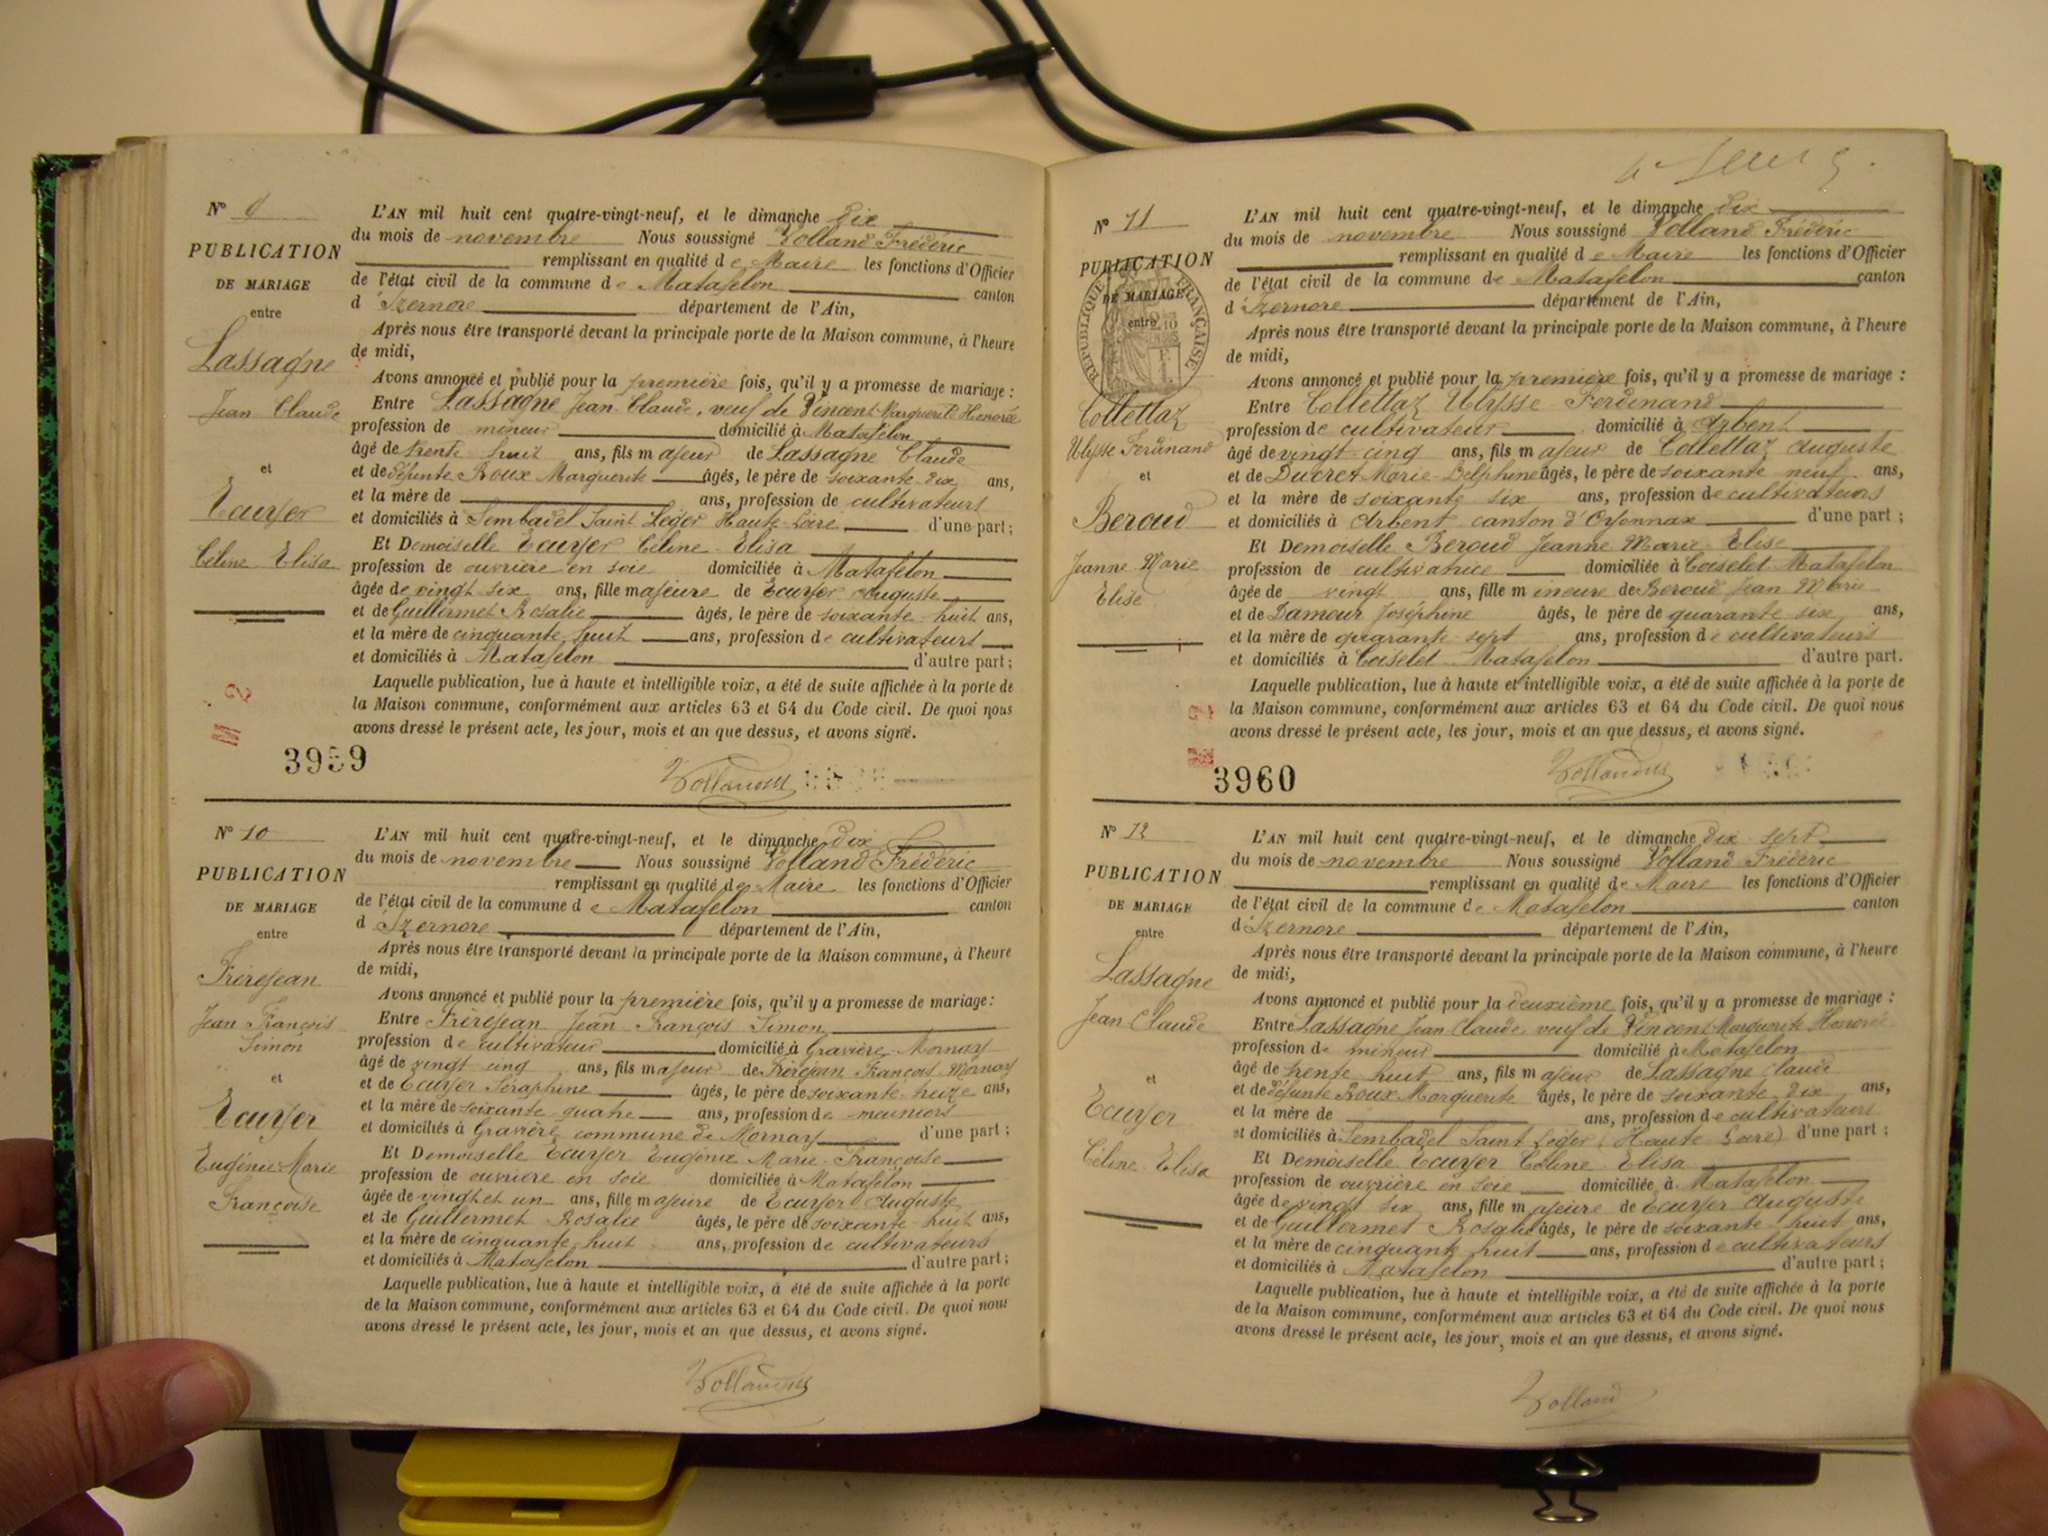 N° 9
PUBLICATION
DE MARIAGE
entre
Lassagne
Jean Claude
et
Ecuyer
Céline Elisa
L'AN mil huit cent quatre-vingt-neuf, et le dimanche dix
du mois de novembre Nous soussigné Volland Frédéric
remplissant en qualité de Maire les fonctions d'Officier
de l'état civil de la commune de Matafelon canton
d'Izernore département de l'Ain,
Après nous être transporté devant la principale porte de la Maison commune, à l'heure
de midi,
Avons annoncé et publié pour la première fois, qu'il y a promesse de mariage :
Entre Lassagne Jean Claude, veuf de Vincent Marguerite Honorée
profession de mineur domicilié à Matafelon
âgé de trente huit ans, fils majeur de Lassagne Claude
et de défunte Roux Marguerite âgés, le père de soixante dix ans,
et la mère de ans, profession de cultivateurs
et domiciliés à Sembadel Saint Léger Haute-Loire d'une part ;
Et Demoiselle Ecuyer Céline Elisa
profession de ouvrière en soie domiciliée à Matafelon
âgée de vingt six ans, fille majeure de Ecuyer Auguste
et de Guillermet Rosalie âgés, le père de soixante huit ans,
et la mère de cinquante huit ans, profession de cultivateurs
et domiciliés à Matafelon d'autre part ;
Laquelle publication, lue à haute et intelligible voix, a été de suite affichée à la porte de
la Maison commune, conformément aux articles 63 et 64 du Code civil. De quoi nous
avons dressé le présent acte, les jour, mois et an que dessus, et avons signé.
3959
N° 10
PUBLICATION
DE MARIAGE
entre
Frèrejean
Jean François
Simon
et
Ecuyer
Eugénie Marie
Françoise
L'AN mil huit cent quatre-vingt-neuf, et le dimanche dix
du mois de novembre Nous soussigné Volland Frédéric
remplissant en qualité de Maire les fonctions d'Officier
de l'état civil de la commune de Matafelon canton
d'Izernore département de l'Ain,
Après nous être transporté devant la principale porte de la Maison commune, à l'heure
de midi,
Avons annoncé et publié pour la première fois, qu'il y a promesse de mariage :
Entre Frèrejean Jean François Simon
profession de cultivateur domicilié à Gravière Mornay
âgé de vingt cinq ans, fils majeur de Frèrejean François Mornay
et de Ecuyer Séraphine âgés, le père de soixante treize ans,
et la mère de soixante quatre ans, profession de meuniers
et domiciliés à Gravière commune de Mornay d'une part ;
Et Demoiselle Ecuyer Eugénie Marie Françoise
profession de ouvrière en soie domiciliée à Matafelon
âgée de vingt et un ans, fille majeure de Ecuyer Auguste
et de Guillermet Rosalie âgés, le père de soixante huit ans,
et la mère de cinquante huit ans, profession de cultivateurs
et domiciliés à Matafelon d'autre part ;
Laquelle publication, lue à haute et intelligible voix, a été de suite affichée à la porte
de la Maison commune, conformément aux articles 63 et 64 du Code civil. De quoi nous
avons dressé le présent acte, les jour, mois et an que dessus, et avons signé.
N° 11
PUBLICATION
DE MARIAGE
entre
RÉPUBLIQUE FRANÇAISE
Collettaz
Ulysse Ferdinand
et
Beroud
Jeanne Marie
Elise
L'AN mil huit cent quatre-vingt-neuf, et le dimanche dix
du mois de novembre Nous soussigné Volland Frédéric
remplissant en qualité de Maire les fonctions d'Officier
de l'état civil de la commune de Matafelon canton
d'Izernore département de l'Ain,
Après nous être transporté devant la principale porte de la Maison commune, à l'heure
de midi,
Avons annoncé et publié pour la première fois, qu'il y a promesse de mariage :
Entre Collettaz Ulysse Ferdinand
profession de cultivateur domicilié à Arbent
âgé de vingt cinq ans, fils majeur de Collettaz Auguste
et de Ducret Marie Delphine âgés, le père de soixante neuf ans,
et la mère de soixante six ans, profession de cultivateurs
et domiciliés à Arbent canton d'Oyonnax d'une part ;
Et Demoiselle Beroud Jeanne Marie Elise
profession de cultivatrice domiciliée à Coiselet Matafelon
âgée de vingt ans, fille mineure de Beroud Jean Marie
et de Damour Joséphine âgés, le père de quarante six ans,
et la mère de quarante sept ans, profession de cultivateurs
et domiciliés à Coiselet Matafelon d'autre part.
Laquelle publication, lue à haute et intelligible voix, a été de suite affichée à la porte de
la Maison commune, conformément aux articles 63 et 64 du Code civil. De quoi nous
avons dressé le présent acte, les jour, mois et an que dessus, et avons signé.
3960
N° 12
PUBLICATION
DE MARIAGE
entre
Lassagne
Jean Claude
et
Ecuyer
Céline Elisa
L'AN mil huit cent quatre-vingt-neuf, et le dimanche dix sept
du mois de novembre Nous soussigné Volland Frédéric
remplissant en qualité de Maire les fonctions d'Officier
de l'état civil de la commune de Matafelon canton
d'Izernore département de l'Ain,
Après nous être transporté devant la principale porte de la Maison commune, à l'heure
de midi,
Avons annoncé et publié pour la deuxième fois, qu'il y a promesse de mariage :
Entre Lassagne Jean Claude veuf de Vincent Marguerite Honorée
profession de mineur domicilié à Matafelon
âgé de trente huit ans, fils majeur de Lassagne Claude
et de défunte Roux Marguerite âgés, le père de soixante dix ans,
et la mère de ans, profession de cultivateurs
et domiciliés à Sembadel Saint Léger (Haute Loire) d'une part ;
Et Demoiselle Ecuyer Céline Elisa
profession de ouvrière en soie domiciliée à Matafelon
âgée de vingt six ans, fille majeure de Ecuyer Auguste
et de Guillermet Rosalie âgés, le père de soixante huit ans,
et la mère de cinquante huit ans, profession de cultivateurs
et domiciliés à Matafelon d'autre part ;
Laquelle publication, lue à haute et intelligible voix, a été de suite affichée à la porte
de la Maison commune, conformément aux articles 63 et 64 du Code civil. De quoi nous
avons dressé le présent acte, les jour, mois et an que dessus, et avons signé.
Volland